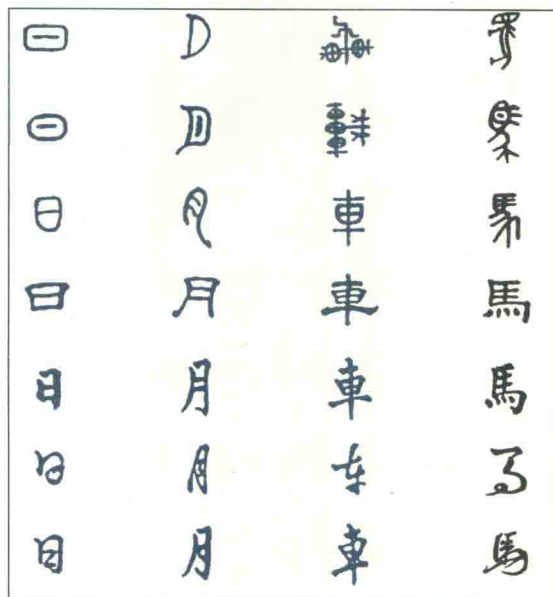 日 月 車 馬
日 月 車 馬
日 月 車 馬
日 月 車 馬
日 月 車 馬
日 月 车 马
日 月 車 馬